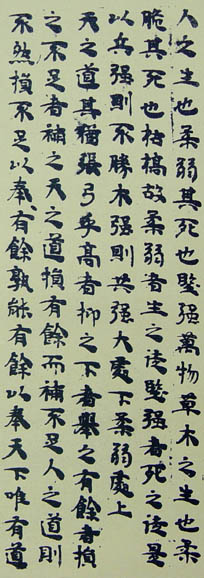 人之生也柔弱其死也堅强萬物草木之生也柔
脆其死也枯槁故柔弱者生之徒堅强者死之徒是
以兵强則不勝木强則共强大處下柔弱處上
天之道其猶張弓乎高者抑之下者舉之有餘者損
之不足者補之天之道損有餘而補不足人之道則
不然損不足以奉有餘孰能有餘以奉天下唯有道